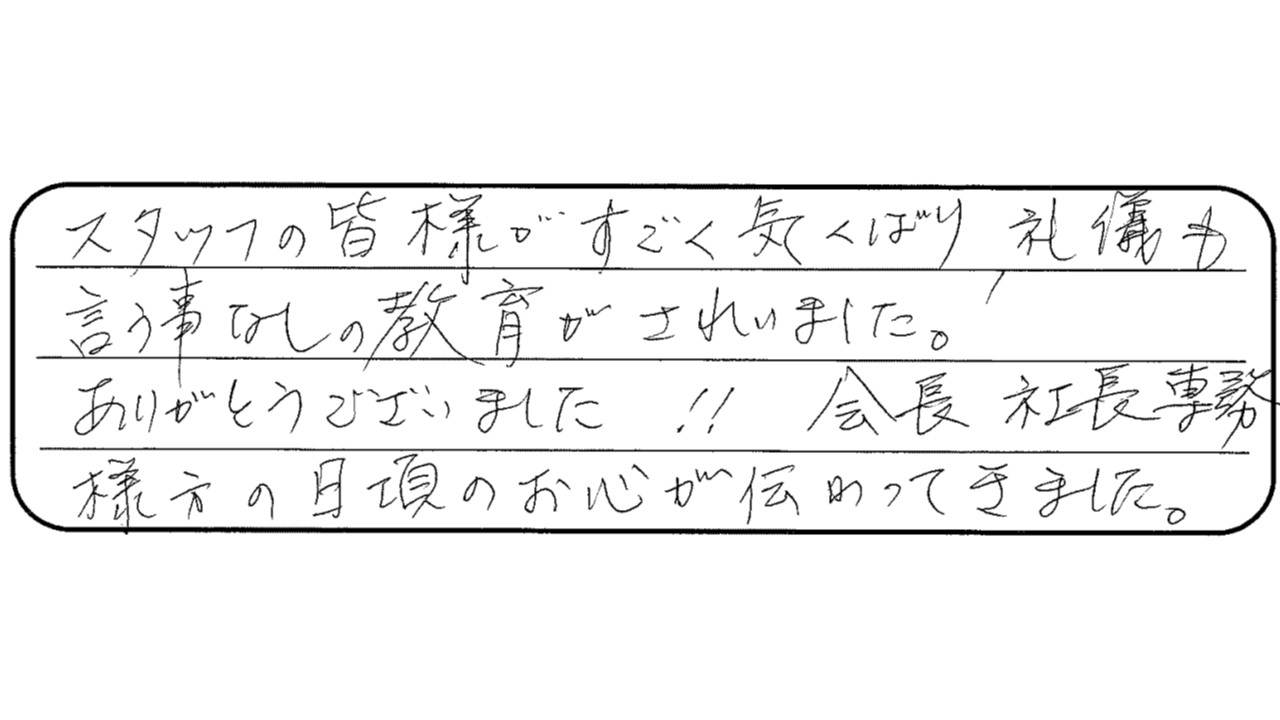 スタッフの皆様がすごく気くばり、礼儀も
言う事なしの教育がされいました。
ありがとうございました!! 会長 社長 専務
様方の日頃のお心が伝わってきました。